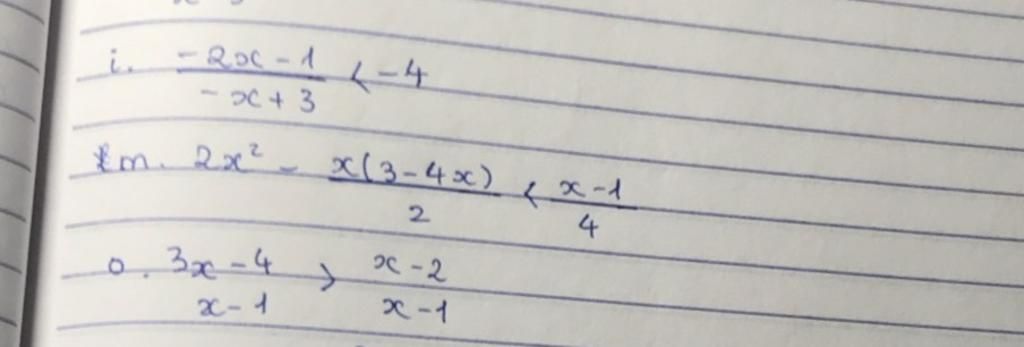 i. (-2x-1)/(-x+3) < -4
m. 2x² - x(3-4x)/2 < (x-1)/4
o. (3x-4)/(x-1) > (x-2)/(x-1)